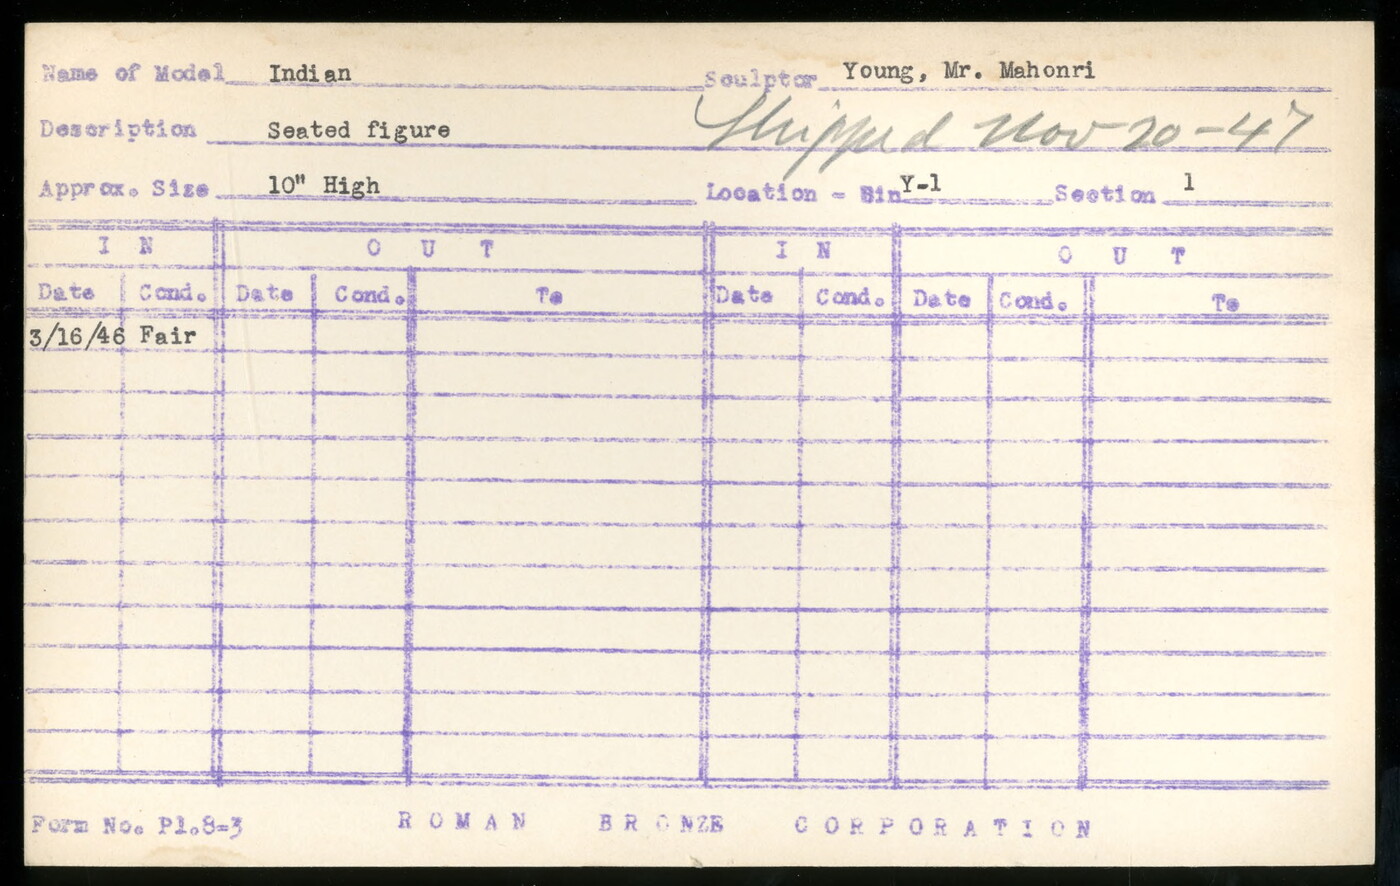 Name of Model Indian Sculptor Young, Mr. Mahonri
Description Seated figure Shipped Nov 20-47
Approx. Size 10" High Location - Bin Y-1 Section 1
I N O U T I N O U T
Date Cond. Date Cond. To Date Cond. Date Cond. To
3/16/46 Fair
Form No. Pl.8-3 ROMAN BRONZE CORPORATION